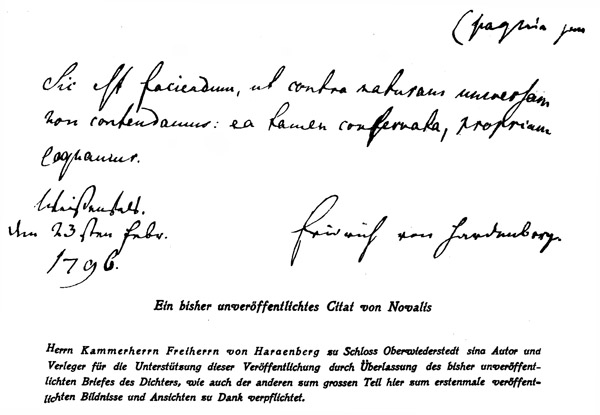 Sic est faciendum, ut contra naturam universam
non contendamus: ea tamen conservata, propriam
sequamur.
Weißenfels.
den 23sten Febr.
1796.
Fridrich von Hardenberg.
Ein bisher unveröffentlichtes Citat von Novalis
Herrn Kammerherrn Freiherrn von Hardenberg zu Schloss Oberwiederstedt sind Autor und
Verleger für die Unterstützung dieser Veröffentlichung durch Überlassung des bisher unveröffent-
lichten Briefes des Dichters, wie auch der anderen zum grossen Teil hier zum erstenmale veröffent-
lichten Bildnisse und Ansichten zu Dank verpflichtet.